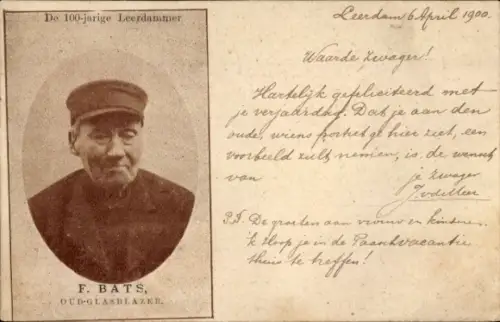 De 100-jarige Leerdammer
F. BATS,
OUD-GLASBLAZER.
Leerdam 6 April 1900.
Waarde Zwager!
Hartelijk gefeliciteerd met
je verjaardag. Dat je aan den
oude, wiens portret ge hier ziet, een
voorbeeld zult nemen, is de wensch
van je Zwager
J. v d Meer
P.S. De groeten aan vrouw en kinderen.
ik hoop je in de Paaschvacantie
thuis te treffen!